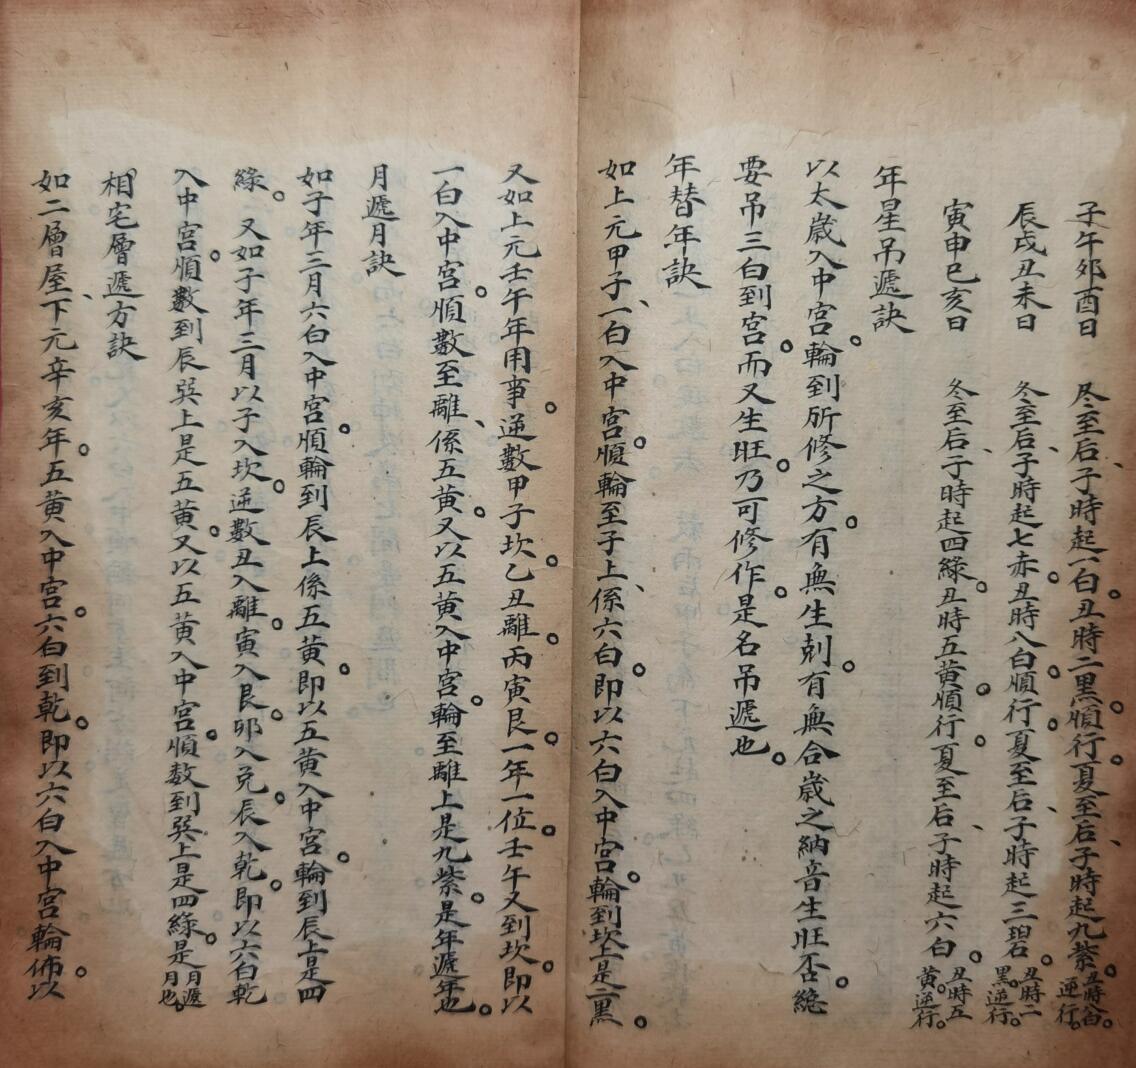 子午夘酉日　冬至后、子時起一白。丑時二黒。順行。夏至后、子時起九紫。丑時八白。逆行。
辰戌丑未日　冬至后、子時起七赤。丑時八白。順行。夏至后、子時起三碧。丑時二黒。逆行。
寅申巳亥日　冬至后、子時起四綠。丑時五黄。順行。夏至后、子時起六白。丑時五黄。逆行。
年星吊遞訣
以太歲入中宮。輪到所修之方。有無生剋。有無合歲之納音生旺否。總
要吊三白到宮。而又生旺。乃可修作。是名吊遞也。
年替年訣
如上元甲子、一白入中宮。順輪至子上、係六白。即以六白入中宮。輪到坎上是二黒。
又如上元壬午年用事。逆數甲子坎。乙丑離。丙寅艮。一年一位。壬午又到坎。即以
一白入中宮。順數至離、係五黄。又以五黄入中宮。輪至離上是九紫。是年遞年也。
月遞月訣
如子年三月六白入中宮。順輪到辰上係五黄。即以五黄入中宮。輪到辰上是四
綠。又如子年三月以子入坎。逆數丑入離。寅入艮。卯入兌。辰入乾。即以六白乾
入中宮。順數到辰巽上是五黄。又以五黄入中宮。順数到巽上是四綠。是月遞月也。
相宅層遞方訣
如二層屋、下元辛亥年。五黄入中宮。六白到乾。即以六白入中宮輪佈。以